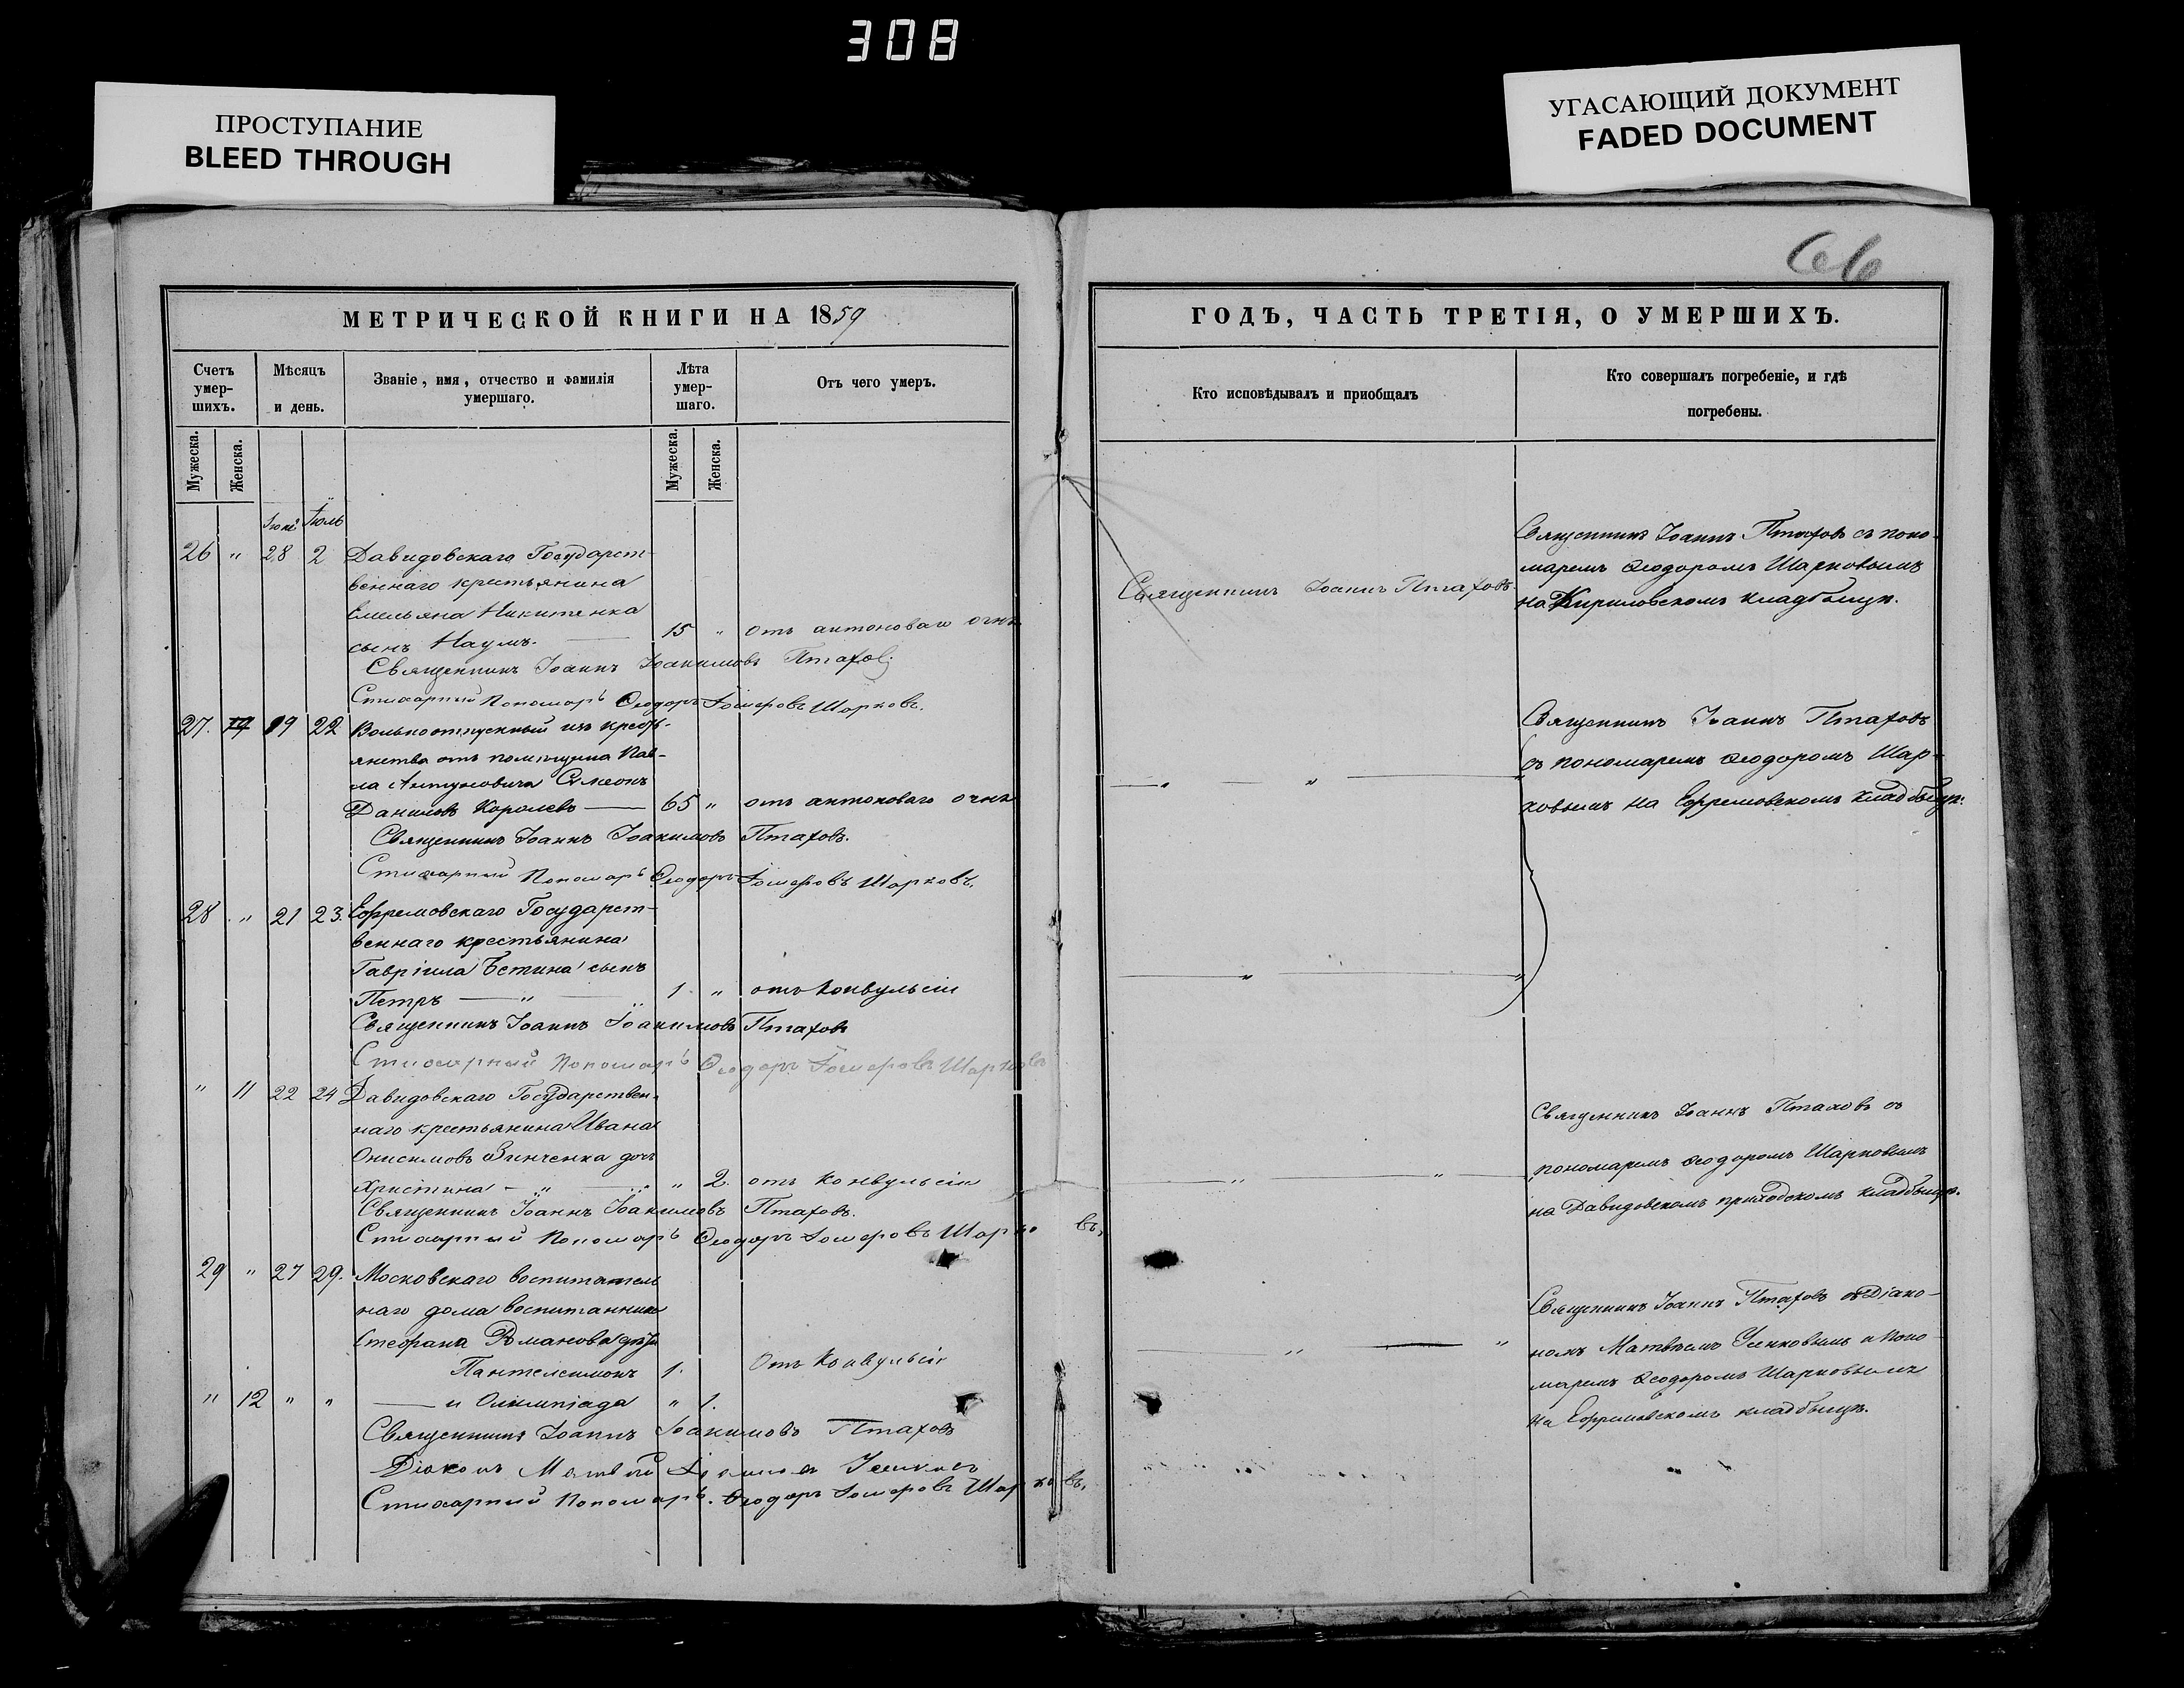 308
ПРОСТУПАНИЕ
BLEED THROUGH
УГАСАЮЩИЙ ДОКУМЕНТ
FADED DOCUMENT
66
МЕТРИЧЕСКОЙ КНИГИ НА 1859
Счетъ умер-шихъ.
Мѣсяцъ и день.
Званіе, имя, отчество и фамилія умершаго.
Лѣта умер-шаго.
Отъ чего умеръ.
Мужеска.
Женска.
Мужеска.
Женска.
Іюль
26 " 28 2 Давидовскаго Государст-
веннаго крестьянина
Емельяна Никитенка
сынъ Наумъ. — 15 " отъ антоноваго огня
Священникъ Іоаннъ Іоакимовъ Птаховъ
Стихарный Пономарь Ѳеодоръ Шарковъ.
27. 19 22 Вольноотпускный изъ кресть-
янства отъ помѣщика Пав-
ла Симеонъ
Даниловъ Королевъ — 65 " отъ антоноваго огня
Священникъ Іоаннъ Іоакимовъ Птаховъ.
Стихарный Пономарь Ѳеодоръ Шарковъ.
28 " 21 23. Ефремовскаго Государст-
веннаго крестьянина
Гавріила сынъ
Петръ — " — 1. " отъ конвульсіи
Священникъ Іоаннъ Іоакимовъ Птаховъ
Стихарный Пономарь Ѳеодоръ Шарковъ
" 11 22 24 Давидовскаго Государствен-
наго крестьянина Ивана
Онисимовъ Зинченка дочь
Христина — " — " 2. отъ конвульсіи
Священникъ Іоаннъ Іоакимовъ Птаховъ.
Стихарный Пономарь Ѳеодоръ Шарковъ.
29 " 27 29. Московскаго воспитатель
наго дома воспитанника
Стефана Романова дѣти
Пантелеимонъ 1. Отъ Конвульсіи
" 12 " " — и Олимпіада " 1.
Священникъ Іоаннъ Іоакимовъ Птаховъ
Діаконъ Матвѣй
Стихарный Пономарь. Ѳеодоръ Шарковъ.
ГОДЪ, ЧАСТЬ ТРЕТІЯ, О УМЕРШИХЪ.
Кто исповѣдывалъ и приобщалъ
Кто совершалъ погребеніе, и гдѣ
погребены.
Священникъ Іоаннъ Птаховъ
Священникъ Іоаннъ Птаховъ съ поно-
маремъ Ѳеодоромъ Шарковымъ
на Кириловскомъ кладбищѣ.
Священникъ Іоаннъ Птаховъ
съ пономаремъ Ѳеодоромъ Шар-
ковымъ на Ефремовскомъ кладбищѣ.
Священникъ Іоаннъ Птаховъ съ
пономаремъ Ѳеодоромъ Шарковымъ
на Давидовскомъ приходскомъ кладбищѣ.
Священникъ Іоаннъ Птаховъ съ Діако-
номъ Матвѣемъ и поно-
маремъ Ѳеодоромъ Шарковымъ
на Ефремовскомъ кладбищѣ.